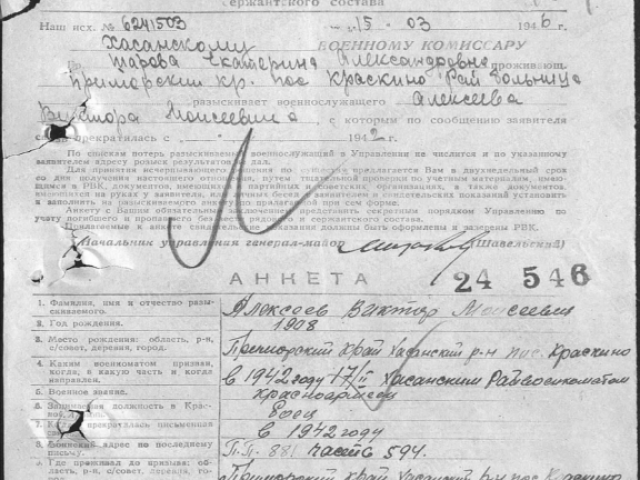 сержантского состава
Наш исх. № 6241503 15. 03 1946 г.
Хасанскому ВОЕННОМУ КОМИССАРУ
Царова Екатерина Александровна проживающ.
Приморский кр. пос Краскино Рай больница
разыскивает военнослужащего Алексеева
Виктора Моисеевича, с которым по сообщению заявителя
связь прекратилась с 1942 г.
По спискам потерь разыскиваемый военнослужащий в Управлении не числится и по указанному
заявителем адресу розыск результатов не дал.
Для принятия исчерпывающего решения по предлагается Вам в двухнедельный срок
со дня получения настоящего отношения, путем тщательной проверки по учетным материалам, имею-
щимся в РВК, документов, имеющихся в партийных и советских организациях, а также документов,
имеющихся на руках у заявителя, личных бесед с заявителем и свидетельских показаний установить
и заполнить на разыскиваемого анкету, прилагаемой при сем форме.
Анкету с Вашим обязательным представить секретным порядком Управлению по
учету погибшего и пропавшего без вести рядового и сержантского состава.
Прилагаемые к анкете свидетельские показания должны быть оформлены и заверены РВК.
Начальник управления генерал-майор (Шавельский)
АНКЕТА 24 546
1. Фамилия, имя и отчество разы-
скиваемого. Алексеев Виктор Моисеевич
2. Год рождения. 1908
3. Место рождения: область, р-н,
с/совет, деревня, город. Приморский край Хасанский р-н пос. Краскино
4. Каким военкоматом призван,
когда, в какую часть и когда
направлен. в 1942 году 17/II Хасанским Райвоенкоматом
5. Военное звание. красноармеец
6. Занимаемая должность в Крас-
ной боец
7. Когда прекратилась письменная
в 1942 году
8. Воинский адрес по последнему
письму. П.П. 881 часть 594.
9. Где проживал до призыва: об-
ласть, р-н, с/совет, деревня, го- Приморский край Хасанский р-н пос Краскино